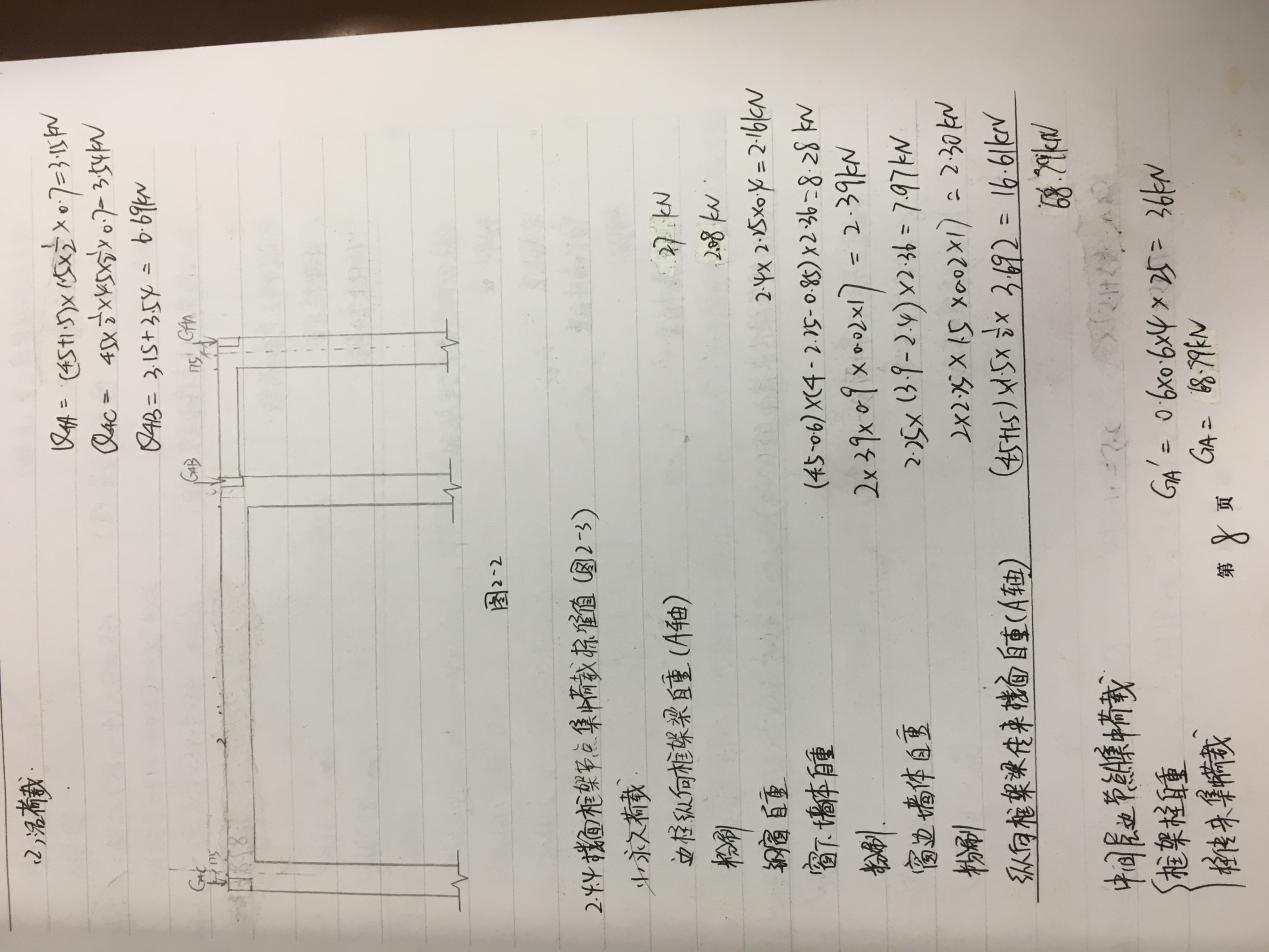 (2)活荷载
Q4A = (4.5+1.5)×1.5×½×0.7=3.15kN
Q4C = 4.5×½×4.5×½×0.7=3.54kN
Q4B = 3.15+3.54 = 6.69kN
G4C G4B G4A
175 175
图2-2
2.4.4 楼面框架节点集中荷载标准值(图2-3)
1)永久荷载
边柱纵向框架梁自重(A轴) 27 kN
粉刷 2.08 kN
钢窗自重 2.4×2.25×0.4=2.16kN
窗下墙体自重 (4.5-0.6)×(4-2.25-0.85)×2.36=8.28kN
粉刷 2×3.9×0.9×0.02×17=2.39kN
窗边墙体自重 2.25×(3.9-2.4)×2.36=7.97kN
粉刷 2×2.25×1.5×0.02×17=2.30kN
纵向框架梁传来楼面自重(A轴) (4.5+1.5)×1.5×½×3.692=16.61kN
68.79kN
中间层边节点集中荷载
框架柱自重 GA′= 0.6×0.6×4×25=36kN
柱传来集中荷载 GA= 68.79kN
第 8 页